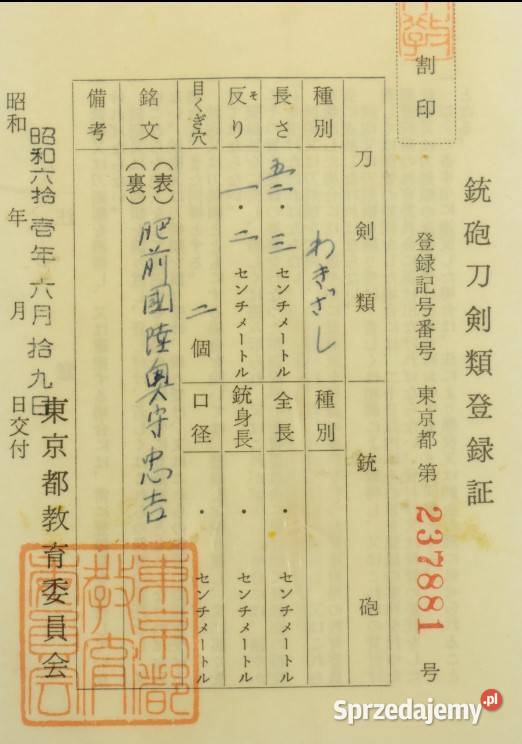 割印
銃砲刀剣類登録証
登録記号番号 東京都 第 237881 号
刀剣類
銃砲
種別 わきざし
種別
長さ 五二・三 センチメートル
全長 ・ センチメートル
反り そ 一・二 センチメートル
銃身長 ・ センチメートル
目くぎ穴 二個
口径 ・ センチメートル
銘文
(表) 肥前國陸奥守忠吉
(裏)
備考
昭和六拾壱年六月拾九日
昭和 年 月 日交付
東京都教育委員会
東京都教育委員会
Sprzedajemy.pl